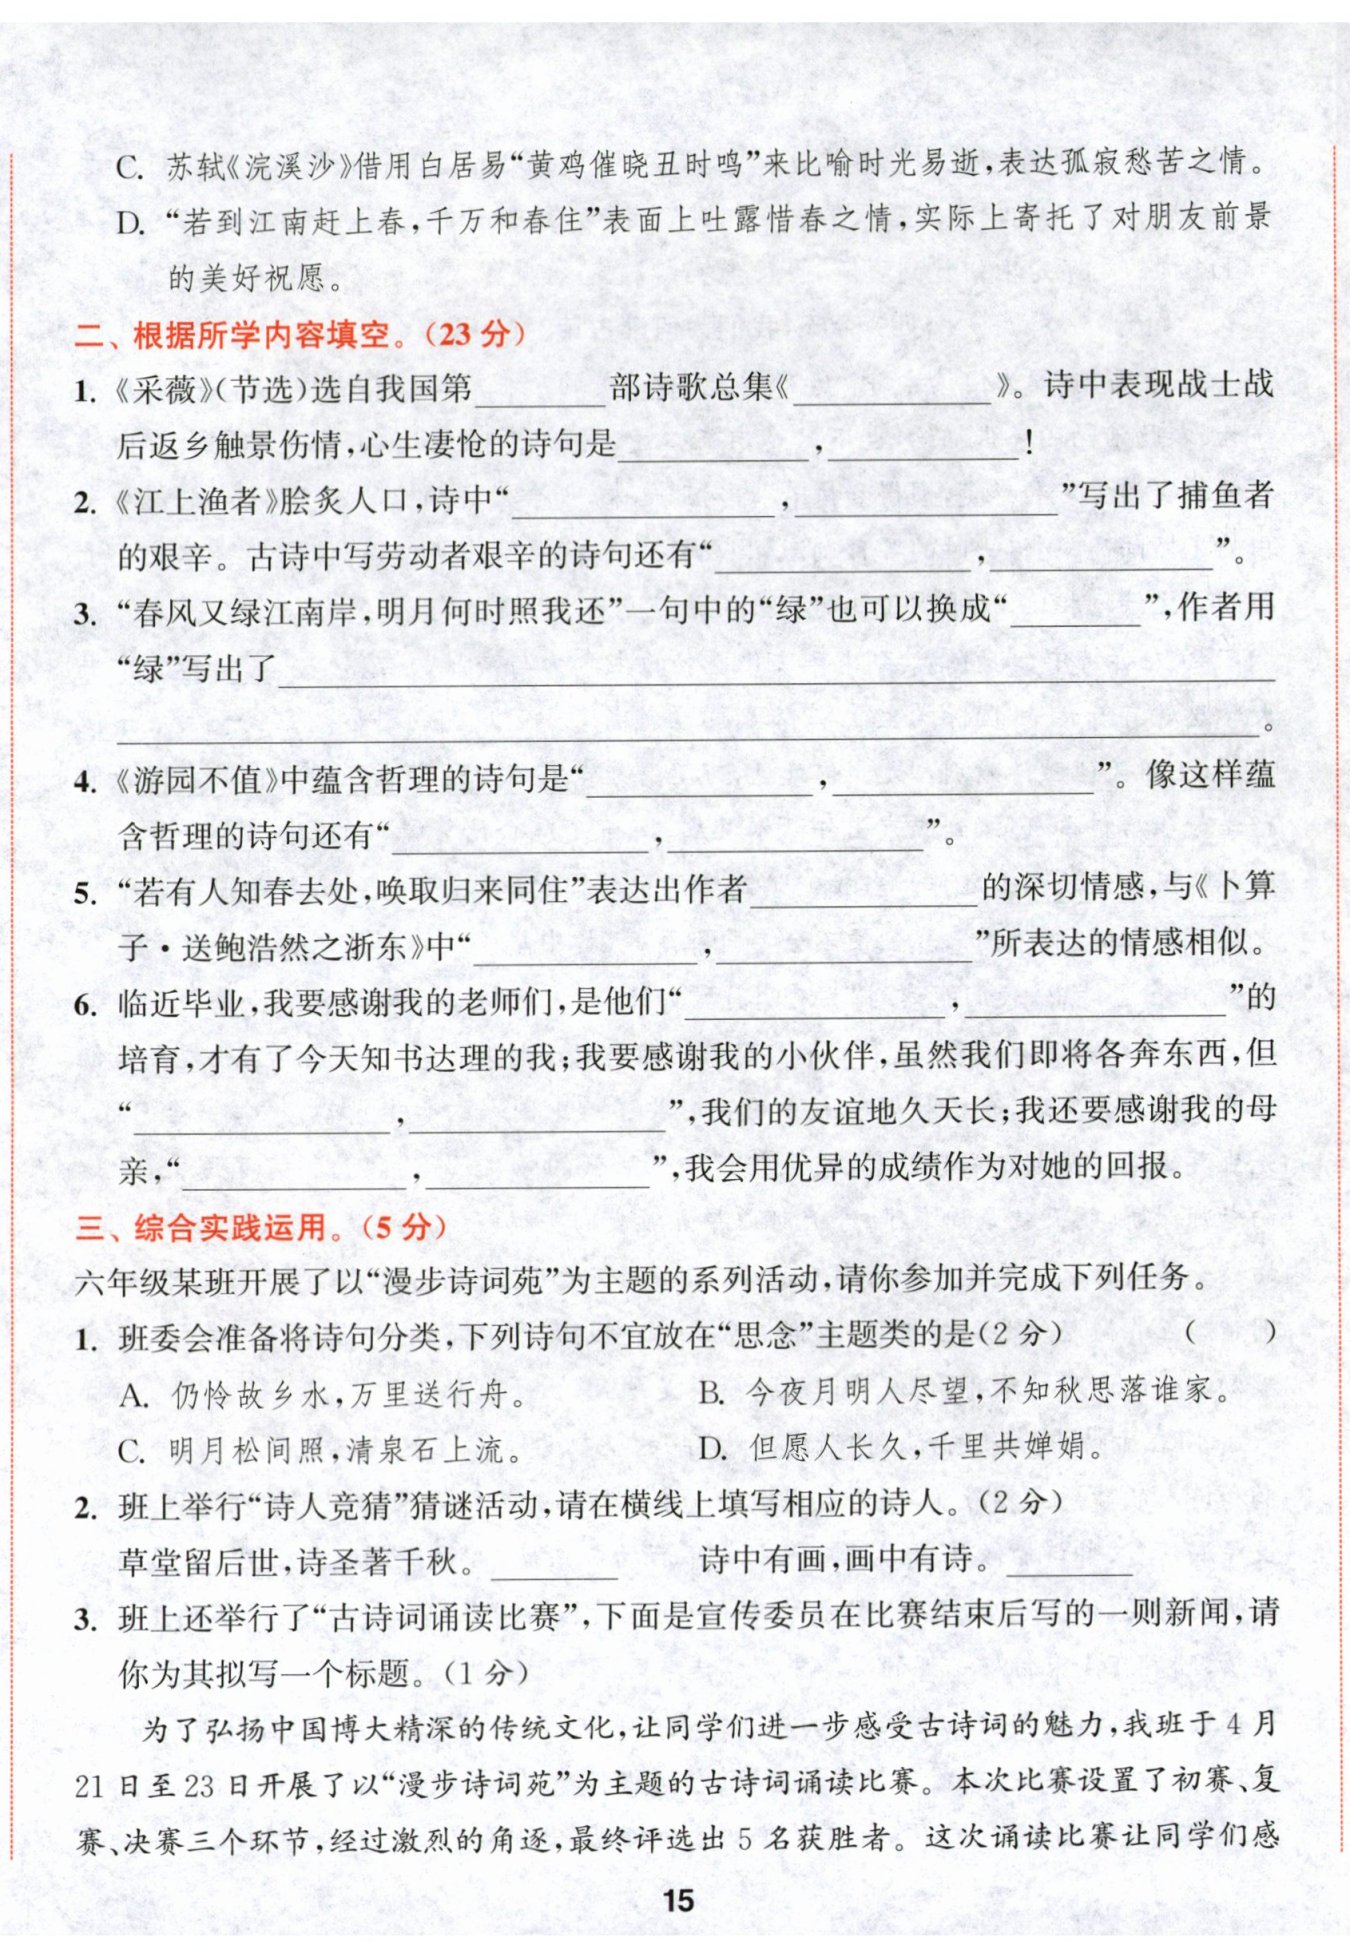 C. 苏轼《浣溪沙》借用白居易“黄鸡催晓丑时鸣”来比喻时光易逝,表达孤寂愁苦之情。
D. “若到江南赶上春,千万和春住”表面上吐露惜春之情,实际上寄托了对朋友前景
的美好祝愿。
二、根据所学内容填空。(23 分)
1. 《采薇》(节选)选自我国第________部诗歌总集《____________》。诗中表现战士战
后返乡触景伤情,心生凄怆的诗句是____________,____________!
2. 《江上渔者》脍炙人口,诗中“________________,________________”写出了捕鱼者
的艰辛。古诗中写劳动者艰辛的诗句还有“________________,______________”。
3. “春风又绿江南岸,明月何时照我还”一句中的“绿”也可以换成“________”,作者用
“绿”写出了____________________________________________________________
______________________________________________________________________。
4. 《游园不值》中蕴含哲理的诗句是“______________,________________”。像这样蕴
含哲理的诗句还有“________________,________________”。
5. “若有人知春去处,唤取归来同住”表达出作者______________的深切情感,与《卜算
子·送鲍浩然之浙东》中“______________,________________”所表达的情感相似。
6. 临近毕业,我要感谢我的老师们,是他们“________________,________________”的
培育,才有了今天知书达理的我;我要感谢我的小伙伴,虽然我们即将各奔东西,但
“________________,________________”,我们的友谊地久天长;我还要感谢我的母
亲,“______________,______________”,我会用优异的成绩作为对她的回报。
三、综合实践运用。(5 分)
六年级某班开展了以“漫步诗词苑”为主题的系列活动,请你参加并完成下列任务。
1. 班委会准备将诗句分类,下列诗句不宜放在“思念”主题类的是(2 分) (    )
A. 仍怜故乡水,万里送行舟。 B. 今夜月明人尽望,不知秋思落谁家。
C. 明月松间照,清泉石上流。 D. 但愿人长久,千里共婵娟。
2. 班上举行“诗人竞猜”猜谜活动,请在横线上填写相应的诗人。(2 分)
草堂留后世,诗圣著千秋。________ 诗中有画,画中有诗。________
3. 班上还举行了“古诗词诵读比赛”,下面是宣传委员在比赛结束后写的一则新闻,请
你为其拟写一个标题。(1 分)
为了弘扬中国博大精深的传统文化,让同学们进一步感受古诗词的魅力,我班于 4 月
21 日至 23 日开展了以“漫步诗词苑”为主题的古诗词诵读比赛。本次比赛设置了初赛、复
赛、决赛三个环节,经过激烈的角逐,最终评选出 5 名获胜者。这次诵读比赛让同学们感
15